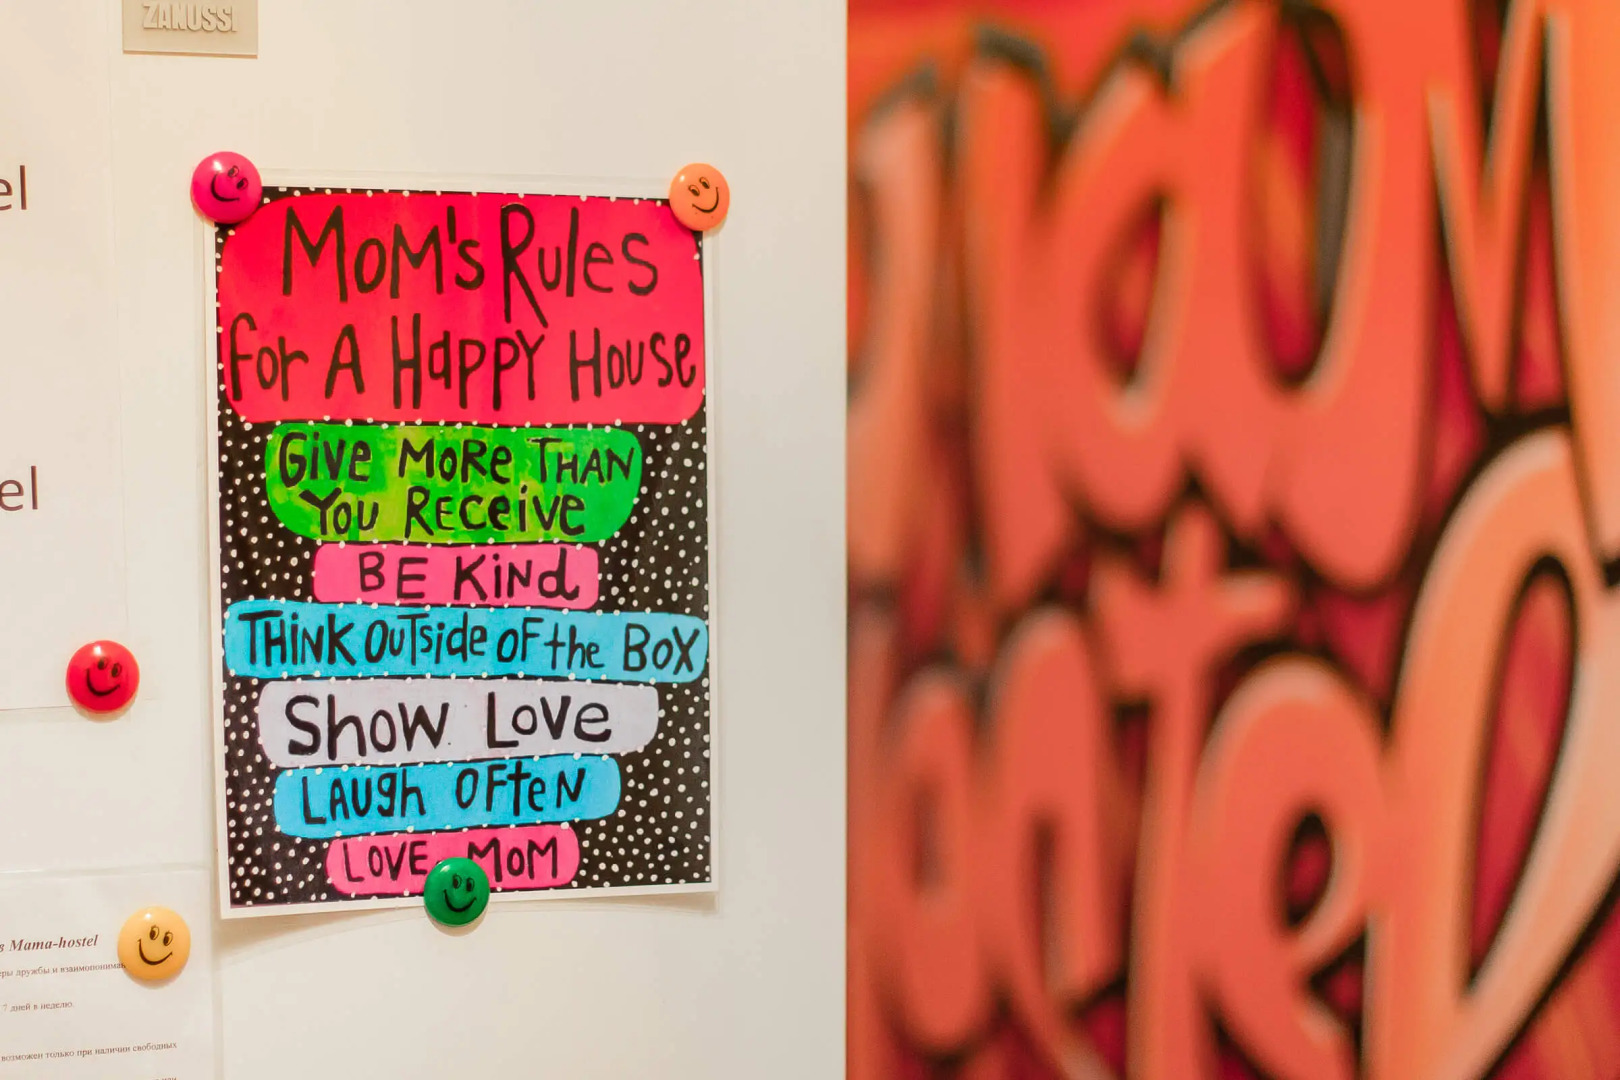 ZANUSSI
el
el
MoM's Rules
for A HAPPY HousE
Give MoRe THAN
You RECeivE
BE KiNd
THiNK OuTside OF the BoX
Show LoVe
LAugh OFteN
LOVE MoM
в Mama-hostel
7 дней в неделю.
возможен только при наличии свободных